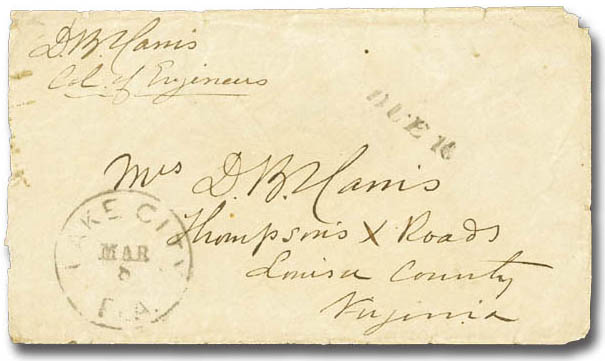 D. B. Harris
Col. of Engineers
DUE 10
Mrs D. B. Harris
Thompson's X Roads
Louisa County
Virginia
LAKE CITY
MAR
5
FLA.